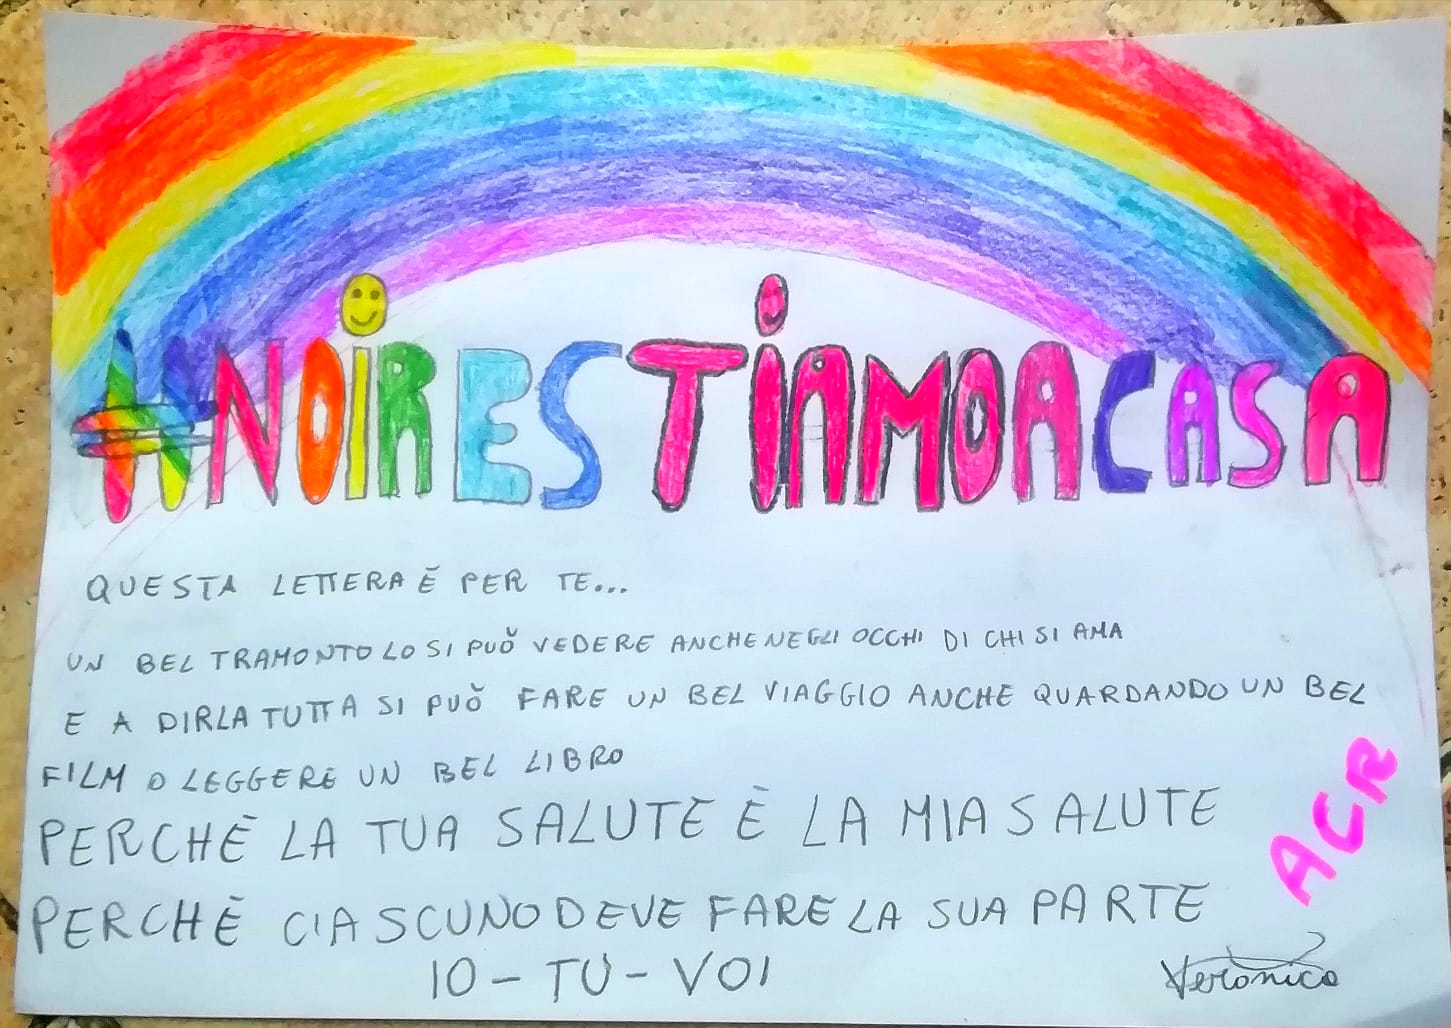 #NOIRESTIAMOACASA
QUESTA LETTERA È PER TE...
UN BEL TRAMONTO LO SI PUÒ VEDERE ANCHE NEGLI OCCHI DI CHI SI AMA
E A DIRLA TUTTA SI PUÒ FARE UN BEL VIAGGIO ANCHE QUARDANDO UN BEL
FILM O LEGGERE UN BEL LIBRO
PERCHÈ LA TUA SALUTE È LA MIA SALUTE
PERCHÈ CIASCUNO DEVE FARE LA SUA PARTE
IO - TU - VOI
ACR
Veronica